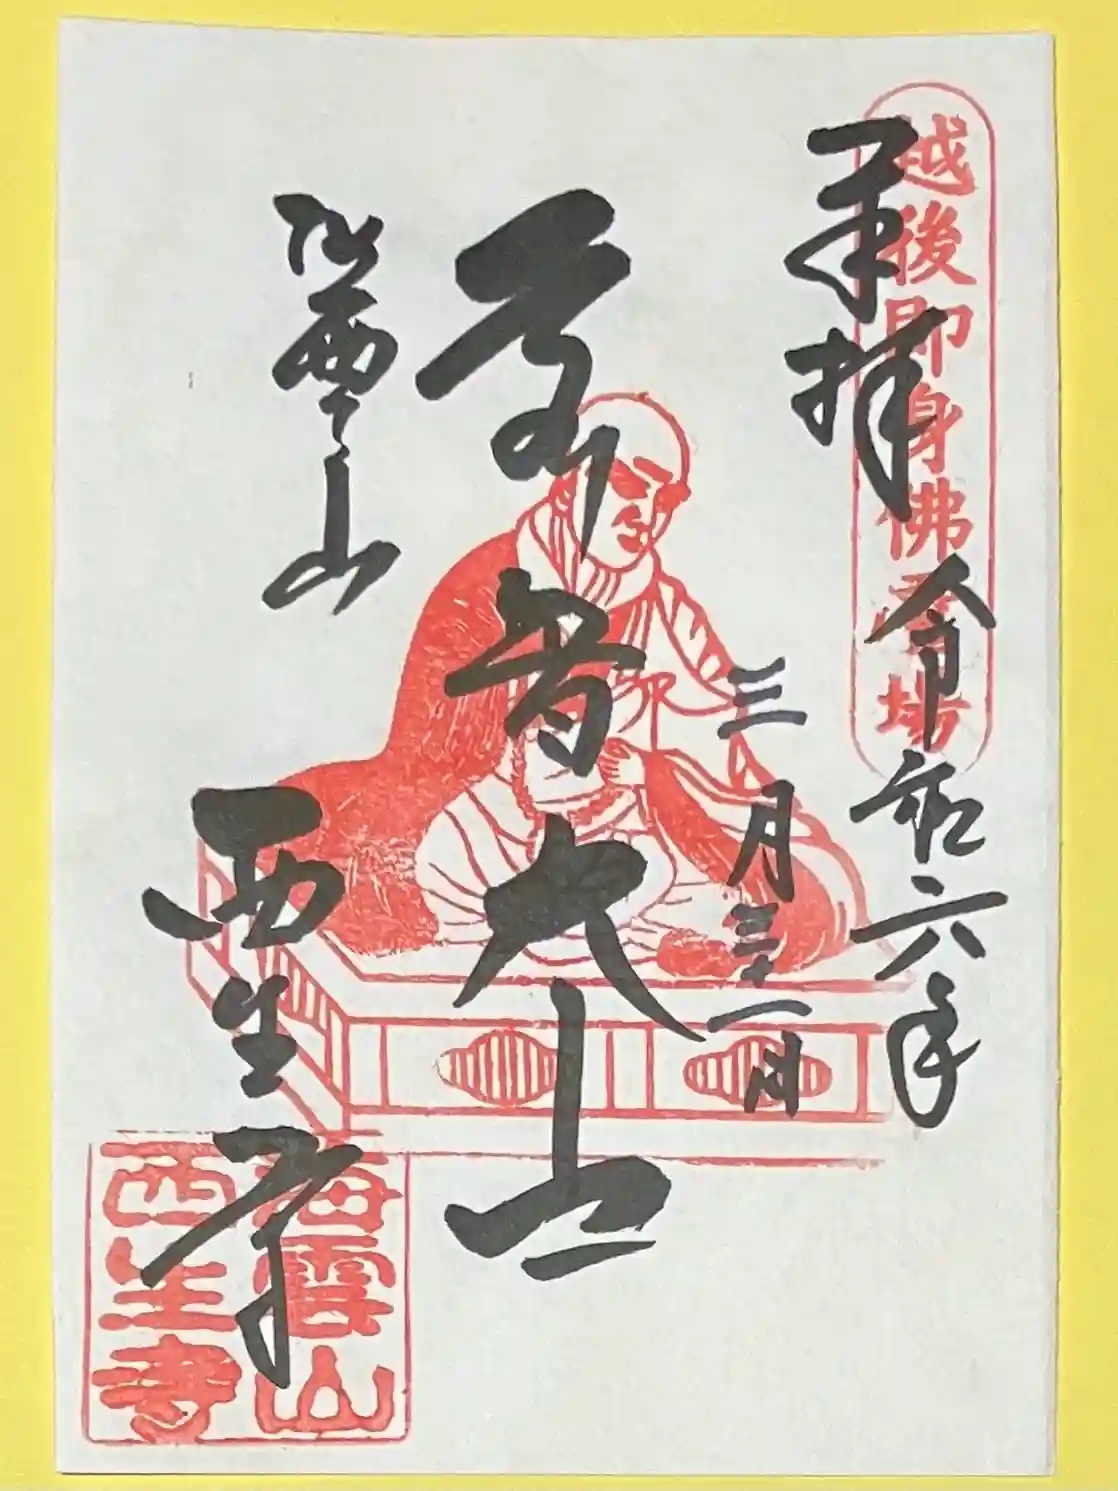 越後即身佛霊場
奉拝
令和六年
三月三十一日
弘智大上
海雲山
西生寺
海雲山
西生寺